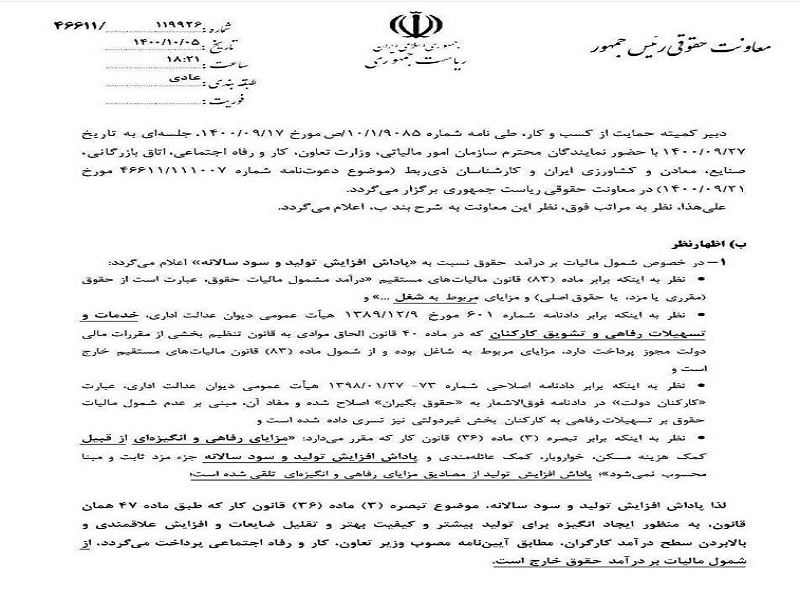 شماره: ۱۱۹۹۲۶ /۴۶۶۱۱
تاریخ: ۱۴۰۰/۱۰/۰۵
ساعت: ۱۸:۲۱
طبقه بندی: عادی
فوریت:
جمهوری اسلامی ایران
ریاست جمهوری
معاونت حقوقی رئیس جمهور
دبیر کمیته حمایت از کسب و کار، طی نامه شماره ۱۰/۱/۹۰۸۵/ص مورخ ۱۴۰۰/۰۹/۱۷، جلسه‌ای به تاریخ
۱۴۰۰/۰۹/۲۷ با حضور نمایندگان محترم سازمان امور مالیاتی، وزارت تعاون، کار و رفاه اجتماعی، اتاق بازرگانی،
صنایع، معادن و کشاورزی ایران و کارشناسان ذی‌ربط (موضوع دعوت‌نامه شماره ۴۶۶۱۱/۱۱۱۰۰۷ مورخ
۱۴۰۰/۰۹/۲۱) در معاونت حقوقی ریاست جمهوری برگزار می‌گردد.
علی‌هذا، نظر به مراتب فوق، نظر این معاونت به شرح بند ب، اعلام می‌گردد.
ب) اظهارنظر
۱– در خصوص شمول مالیات بر درآمد حقوق نسبت به «پاداش افزایش تولید و سود سالانه» اعلام می‌گردد:
• نظر به اینکه برابر ماده (۸۳) قانون مالیات‌های مستقیم «درآمد مشمول مالیات حقوق، عبارت است از حقوق
(مقرری یا مزد، یا حقوق اصلی) و مزایای مربوط به شغل ...» و
• نظر به اینکه برابر دادنامه شماره ۶۰۱ مورخ ۱۳۸۹/۱۲/۹ هیأت عمومی دیوان عدالت اداری، خدمات و
تسهیلات رفاهی و تشویق کارکنان که در ماده ۴۰ قانون الحاق موادی به قانون تنظیم بخشی از مقررات مالی
دولت مجوز پرداخت دارد، مزایای مربوط به شاغل بوده و از شمول ماده (۸۳) قانون مالیات‌های مستقیم خارج
است و
• نظر به اینکه برابر دادنامه اصلاحی شماره ۷۳- ۱۳۹۸/۰۱/۲۷ هیأت عمومی دیوان عدالت اداری، عبارت
«کارکنان دولت» در دادنامه فوق‌الاشعار به «حقوق بگیران» اصلاح شده و مفاد آن، مبنی بر عدم شمول مالیات
حقوق بر تسهیلات رفاهی به کارکنان بخش غیردولتی نیز تسری داده شده است و
• نظر به اینکه برابر تبصره (۳) ماده (۳۶) قانون کار که مقرر می‌دارد: «مزایای رفاهی و انگیزه‌ای از قبیل
کمک هزینه مسکن، خواروبار، کمک عائله‌مندی و پاداش افزایش تولید و سود سالانه جزء مزد ثابت و مبنا
محسوب نمی‌شود»؛ پاداش افزایش تولید از مصادیق مزایای رفاهی و انگیزه‌ای تلقی شده است؛
لذا پاداش افزایش تولید و سود سالانه، موضوع تبصره (۳) ماده (۳۶) قانون کار که طبق ماده ۴۷ همان
قانون، به منظور ایجاد انگیزه برای تولید بیشتر و کیفیت بهتر و تقلیل ضایعات و افزایش علاقمندی و
بالابردن سطح درآمد کارگران، مطابق آیین‌نامه مصوب وزیر تعاون، کار و رفاه اجتماعی پرداخت می‌گردد، از
شمول مالیات بر درآمد حقوق خارج است.